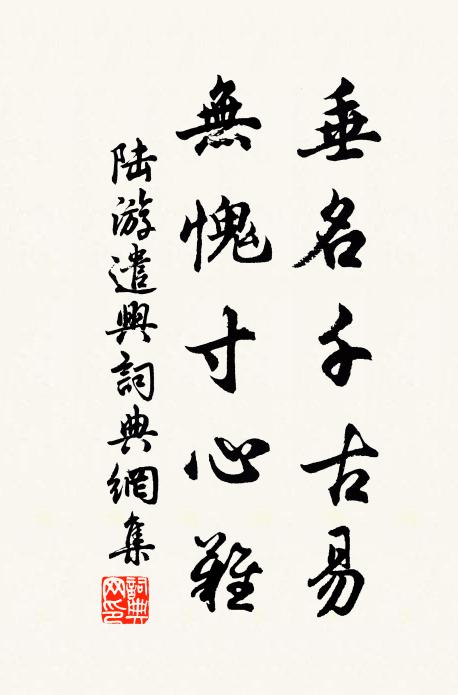 垂名千古易
無愧寸心難
陸游遣興詞典網集
詞典網印